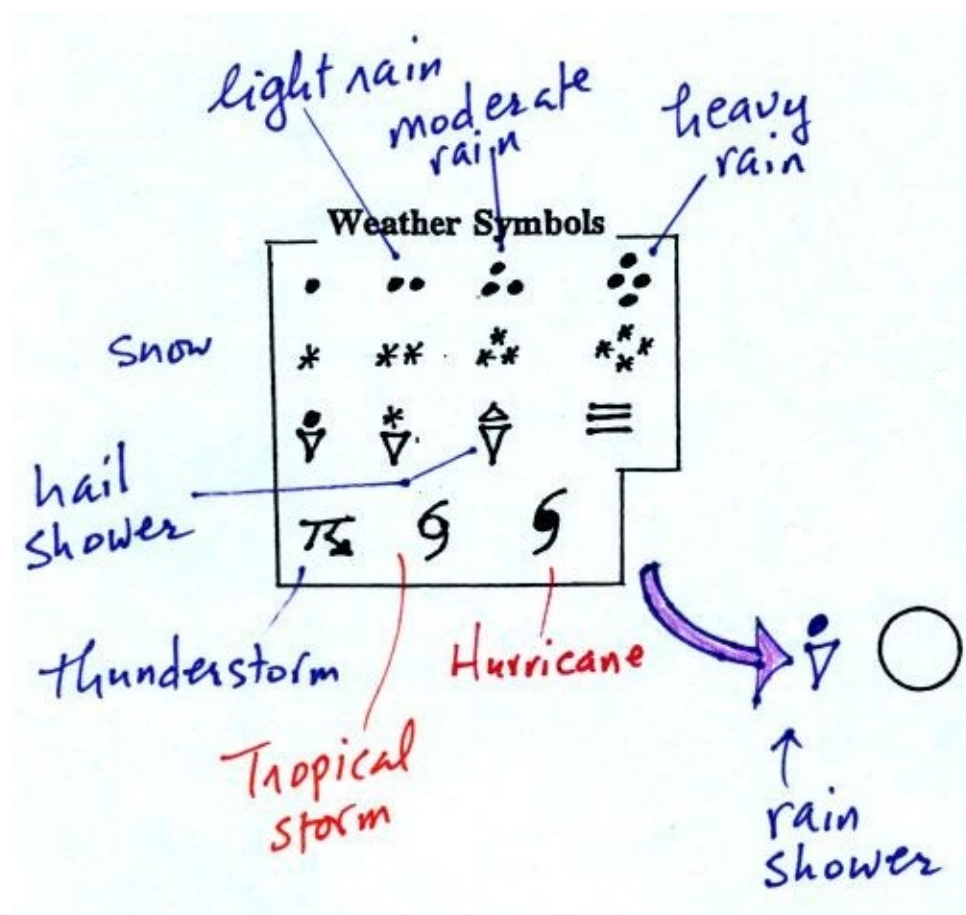 light rain
moderate
rain
heavy
rain
Weather Symbols
snow
hail
shower
Thunderstorm
Hurricane
Tropical
storm
rain
shower